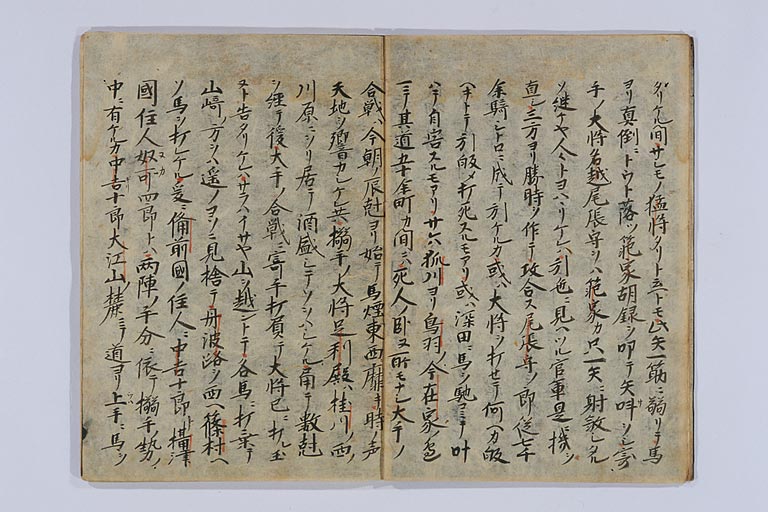 タリケル間サシモノ猛将ナリト云トモ此矢一筋ニ弱リテ馬
ヨリ真倒ニトウト落ツ範家胡録ヲ叩テ矢叫ヲシ寄
手ノ大将名越尾張守ヲハ範家カ只一矢ニ射殺シタル
ソ継ケヤ人々トヨハヽリケレハ引色ニ見ヘツル官軍是ニ機ヲ
直シ三方ヨリ勝時ヲ作テ攻合ス尾張守ノ郎従七千
余騎シトロニ成テ引ケルカ或ハ大将ヲ打セテ何ヘカ皈
ヘキトテ引皈メ打死スルモアリ或ハ深田ニ馬ヲ馳コミテ叶
ハテ自害スルモアリサレハ狐川ヨリ鳥羽ノ今在家ノ邉
ニテ其道五十余町カ間ニハ死人ノ臥又所モナシ大手ノ
合戦ハ今朝ノ辰尅ヨリ始テ馬煙東西ニ靡キ時ノ声
天地ヲ響カシケレ共搦手ノ大将足利殿ハ桂川ノ西ノ
川原ニヲリ居テ酒盛シテソヲハシケル角テ数尅
ヲ経テ後大手ノ合戦ニ寄手打負テ大将已ニ打レ玉
ヌト告タリケレハサラハイサヤ山ヲ越ントテ各馬ニ打乗テ
山崎ノ方ヲハ遥ノヨソニ見捨テ丹波路ヲ西ヘ篠村ヘ
ソ馬ヲ打レケル爰ニ備前國ノ住人ニ中吉十郎ト摂津
國ノ住人奴可四郎トハ両陣ノ手分ニ依テ搦手ノ勢ノ
中ニ有ケルカ中吉十郎大江山ノ麓ニテ道ヨリ上手ニ馬ヲ